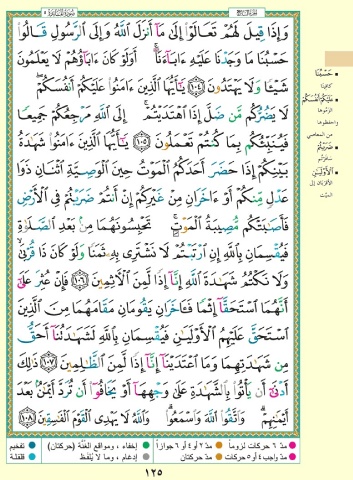 سُورَةُ المَائِدَةِ ٥
الجُزْءُ السَّابِعُ
وَإِذَا قِيلَ لَهُمْ تَعَالَوْا۟ إِلَىٰ مَآ أَنزَلَ ٱللَّهُ وَإِلَى ٱلرَّسُولِ قَالُوا۟
حَسْبُنَا مَا وَجَدْنَا عَلَيْهِ ءَابَآءَنَآ ۚ أَوَلَوْ كَانَ ءَابَآؤُهُمْ لَا يَعْلَمُونَ
شَيْـًٔا وَلَا يَهْتَدُونَ ١٠٤ يَـٰٓأَيُّهَا ٱلَّذِينَ ءَامَنُوا۟ عَلَيْكُمْ أَنفُسَكُمْ ۖ
لَا يَضُرُّكُم مَّن ضَلَّ إِذَا ٱهْتَدَيْتُمْ ۚ إِلَى ٱللَّهِ مَرْجِعُكُمْ جَمِيعًا
فَيُنَبِّئُكُم بِمَا كُنتُمْ تَعْمَلُونَ ١٠٥ يَـٰٓأَيُّهَا ٱلَّذِينَ ءَامَنُوا۟ شَهَـٰدَةُ
بَيْنِكُمْ إِذَا حَضَرَ أَحَدَكُمُ ٱلْمَوْتُ حِينَ ٱلْوَصِيَّةِ ٱثْنَانِ ذَوَا
عَدْلٍ مِّنكُمْ أَوْ ءَاخَرَانِ مِنْ غَيْرِكُمْ إِنْ أَنتُمْ ضَرَبْتُمْ فِى ٱلْأَرْضِ
فَأَصَـٰبَتْكُم مُّصِيبَةُ ٱلْمَوْتِ ۚ تَحْبِسُونَهُمَا مِنۢ بَعْدِ ٱلصَّلَوٰةِ
فَيُقْسِمَانِ بِٱللَّهِ إِنِ ٱرْتَبْتُمْ لَا نَشْتَرِى بِهِۦ ثَمَنًا وَلَوْ كَانَ ذَا قُرْبَىٰ ۙ
وَلَا نَكْتُمُ شَهَـٰدَةَ ٱللَّهِ إِنَّآ إِذًا لَّمِنَ ٱلْـَٔاثِمِينَ ١٠٦ فَإِنْ عُثِرَ عَلَىٰٓ
أَنَّهُمَا ٱسْتَحَقَّآ إِثْمًا فَـَٔاخَرَانِ يَقُومَانِ مَقَامَهُمَا مِنَ ٱلَّذِينَ
ٱسْتَحَقَّ عَلَيْهِمُ ٱلْأَوْلَيَـٰنِ فَيُقْسِمَانِ بِٱللَّهِ لَشَهَـٰدَتُنَآ أَحَقُّ
مِن شَهَـٰدَتِهِمَا وَمَا ٱعْتَدَيْنَآ إِنَّآ إِذًا لَّمِنَ ٱلظَّـٰلِمِينَ ١٠٧ ذَٰلِكَ
أَدْنَىٰٓ أَن يَأْتُوا۟ بِٱلشَّهَـٰدَةِ عَلَىٰ وَجْهِهَآ أَوْ يَخَافُوٓا۟ أَن تُرَدَّ أَيْمَـٰنٌۢ بَعْدَ
أَيْمَـٰنِهِمْ ۗ وَٱتَّقُوا۟ ٱللَّهَ وَٱسْمَعُوا۟ ۗ وَٱللَّهُ لَا يَهْدِى ٱلْقَوْمَ ٱلْفَـٰسِقِينَ ١٠٨
حَسْبُنَا
كافينا
عَلَيْكُمْ أَنفُسَكُمْ
الزموها
واحفظوها
من المعاصي
ضَرَبْتُمْ
سافرتم
الْأَوْلَيَانِ
الأقربان إلى
الميت
مدّ ٦ حركات لزوماً مدّ ٢ أو ٤ أو ٦ جوازاً إخفاء، ومواقع الغُنَّة (حركتان) تفخيم
مدّ واجب ٤ أو ٥ حركات مدّ حركتان إدغام، وما لا يُلفَظ قلقلة
١٢٥